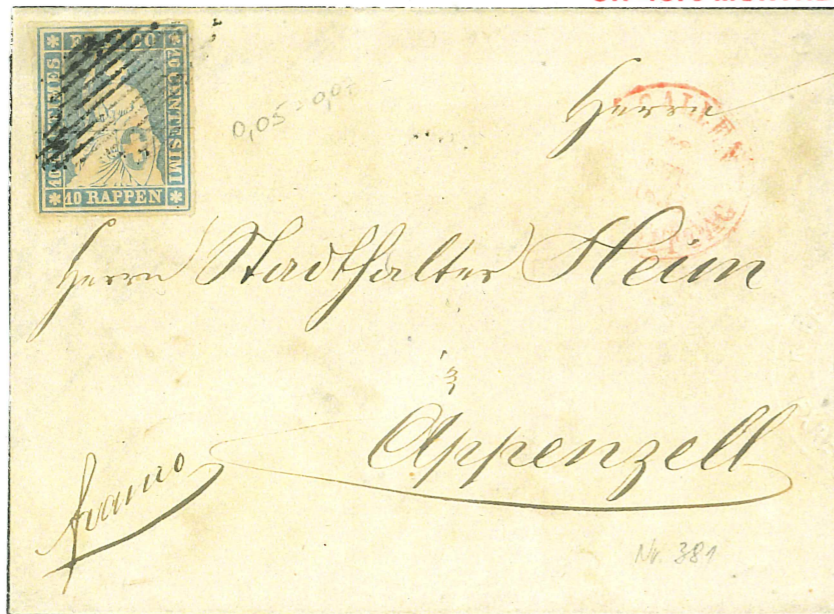 FRANCO
10 CENTIMES
40 CENTESIMI
10 RAPPEN
0,05 - 0,07 -
Herrn
GALLEN
MITTAG
Herrn Stadthalter Heim
Appenzell
franco
Nr. 381